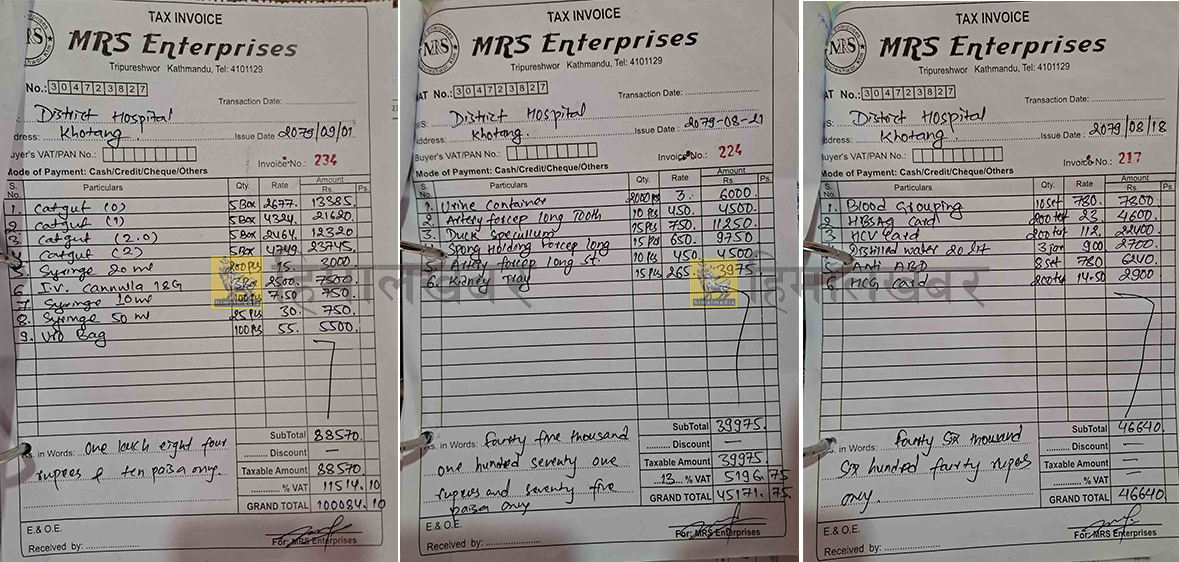 TAX INVOICE
MRS
MRS Enterprises
Tripureshwor Kathmandu, Tel: 4101129
No.: 304723827
Transaction Date:
District Hospital
dress: Khotang
Issue Date 2079/09/01
uyer's VAT/PAN No.:
Invoice No.: 234
Mode of Payment: Cash/Credit/Cheque/Others
S. No. Particulars Qty. Rate Amount Rs. Ps.
1. Catgut (0) 5 Box 2677. 13385.
2 Catgut (1) 5 Box 4324. 21620.
3 Catgut (2.0) 5 Box 2464. 12320
Catgut (2) 5 Box 4749. 23745.
Syringe 20 ml 200 pcs 15. 3000
6 I.V. Cannula 18G 2500. 7500
7. Syringe 10 ml 100 pcs 7.50 750.
8. Syringe 50 ml 25 pcs 30. 750.
9. Uro Bag 100 pcs 55. 5500.
SubTotal 88570.
s. in Words: One lakh eight four
Discount —
rupees & ten paisa only.
Taxable Amount 88570.
% VAT 11514. 10
GRAND TOTAL 100084. 10
E.& O.E.
For: MRS Enterprises
Received by:
TAX INVOICE
MRS
MRS Enterprises
Tripureshwor Kathmandu, Tel: 4101129
AT No.: 304723827
Transaction Date:
M/S: District Hospital
ddress: Khotang
Issue Date : 2079-08-21
Buyer's VAT/PAN No.:
Invoice No.: 224
Mode of Payment: Cash/Credit/Cheque/Others
S. No. Particulars Qty. Rate Amount Rs. Ps.
1. Urine Container 2000 pcs 3. 6000.
2 Artery forcep long Tooth 10 pcs 450. 4500.
3. Duck Specullum 15 pcs 750. 11250.
Spong Holding forcep long 15 pcs 650. 9750
5. Artery forcep long st. 10 pcs 450 4500
6. Kidney Tray 15 pcs 265 3975
SubTotal 39975.
Rs. in Words: fourty five thousand
Discount —
one hundred seventy one
Taxable Amount 39975.
rupees and seventy five
13 % VAT 5196. 75
paisa only
GRAND TOTAL 45171. 75.
E.& O.E.
For: MRS Enterprises
Received by:
TAX INVOICE
MRS
MRS Enterprises
Tripureshwor Kathmandu, Tel: 4101129
AT No.: 304723827
Transaction Date:
District Hospital
ddress: Khotang
Issue Date : 2079/08/18
Buyer's VAT/PAN No.:
Invoice No.: 217
Mode of Payment: Cash/Credit/Cheque/Others
S. No. Particulars Qty. Rate Amount Rs. Ps.
1. Blood Grouping 10 set 780. 7800
2 HBSAg Card 200 test 23 4600.
3 HCV Card 200 test 112. 22400
Distilled water 20 LIT 3 Jar 900 2700.
5. Anti ABD 8 set 780 6240.
6. HCG Card 200 test 14.50 2900
SubTotal 46640.
s. in Words: fourty six thousand
Discount —
six hundred fourty rupees
Taxable Amount —
only.
% VAT —
GRAND TOTAL 46640.
E.& O.E.
For: MRS Enterprises
Received by:
हिमालखबर
हिमालखबर
himalmedia
himalmedia